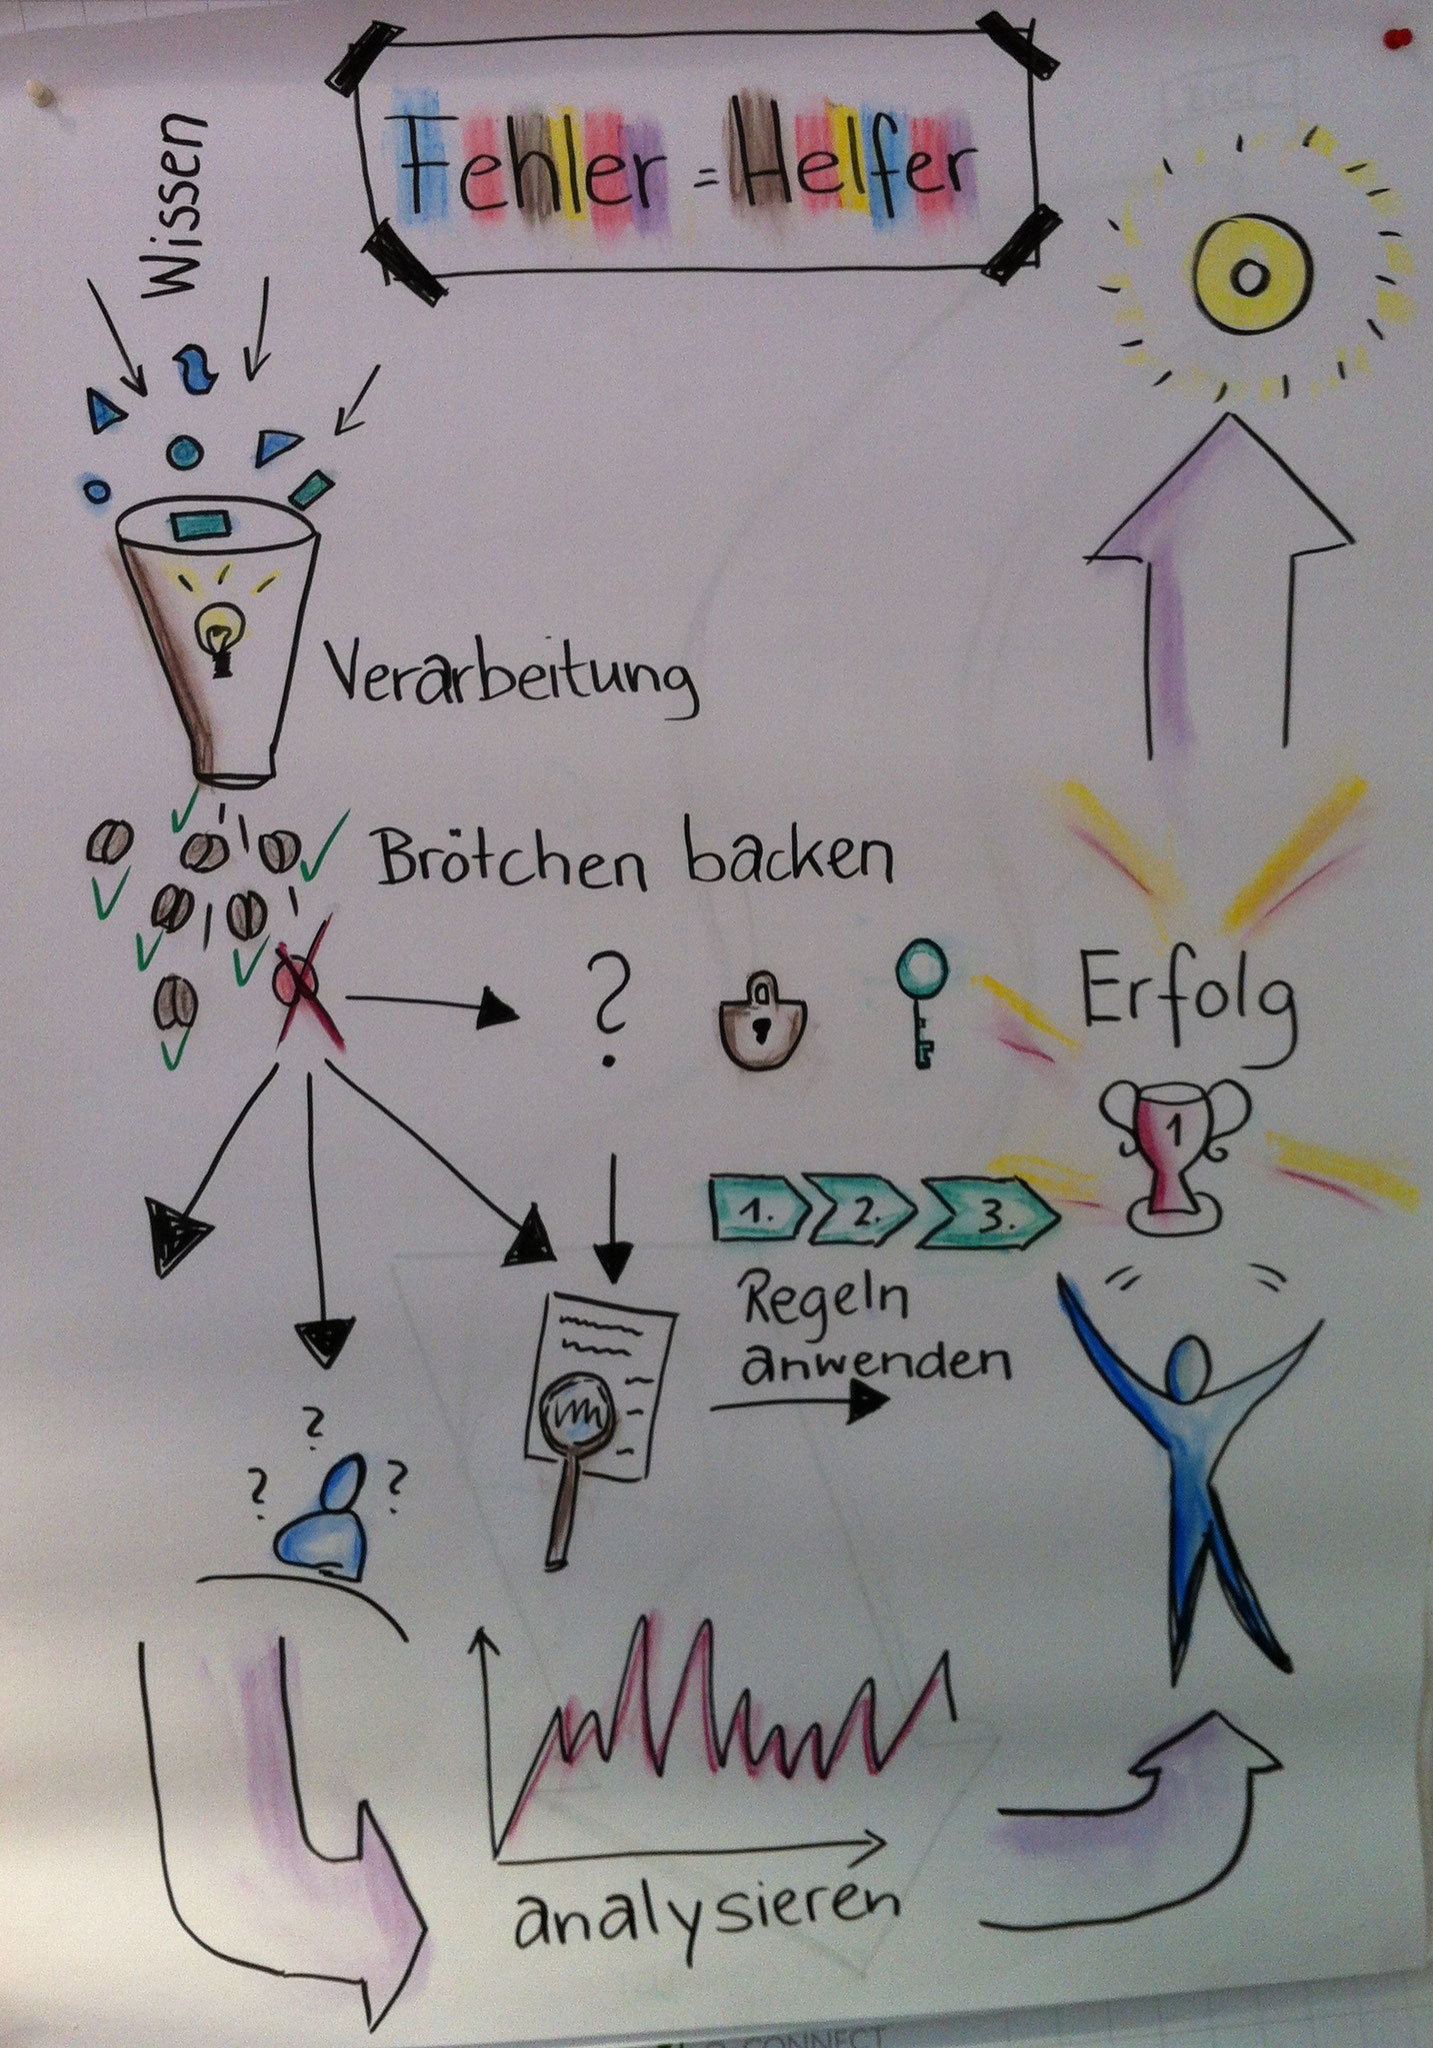 Fehler = Helfer
Wissen
Verarbeitung
Brötchen backen
?
Erfolg
1
1. 2. 3.
Regeln
anwenden
?
? ?
analysieren
CONNECT